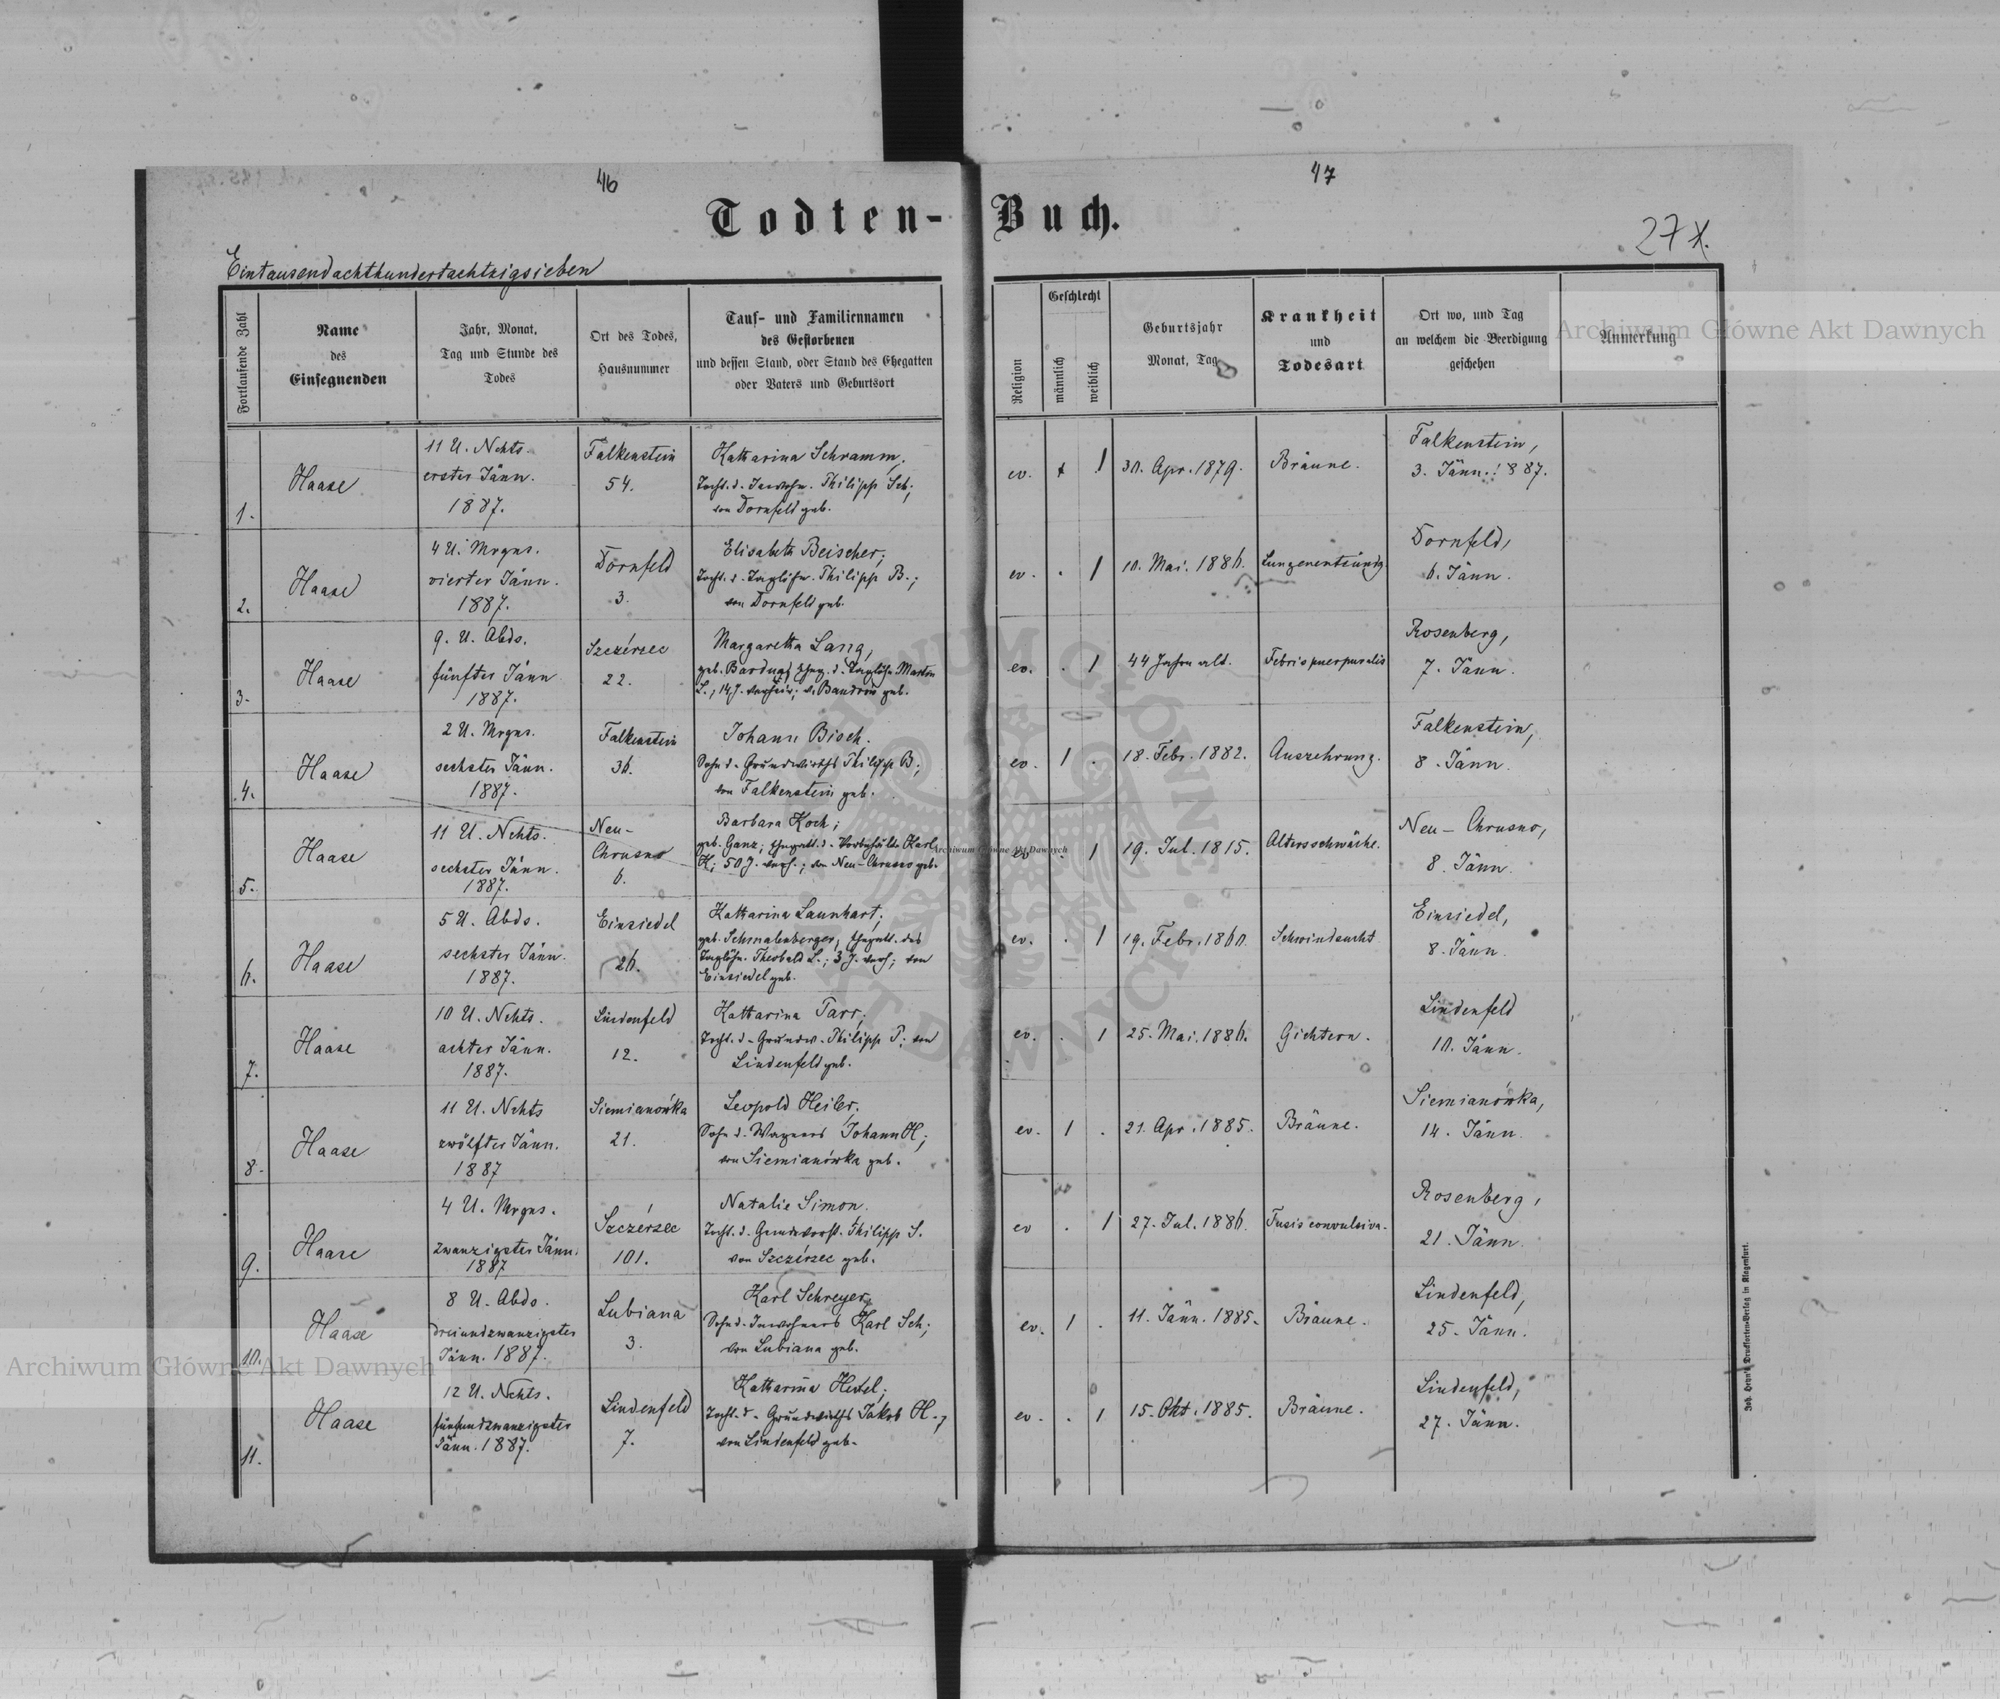 46
47
Todten-Buch.
27 X.
Eintausendachthundertachtzigsieben
Fortlaufende Zahl
Name
des
Einsegnenden
Jahr, Monat,
Tag und Stunde des
Todes
Ort des Todes,
Hausnummer
Tauf- und Familiennamen
des Gestorbenen
und dessen Stand, oder Stand des Ehegatten
oder Vaters und Geburtsort
Religion
Geschlecht
männlich
weiblich
Geburtsjahr
Monat, Tag
Krankheit
und
Todesart
Ort wo, und Tag
an welchem die Beerdigung
geschehen
Anmerkung
Archiwum Główne Akt Dawnych
1.
Haase
11 U. Nchts.
erster Jänn.
1887.
Falkenstein
54.
Katharina Schramm,
Tocht. d. Inwohn. Philipp Sch;
von Dornfeld geb.
ev.
1
30. Apr. 1879.
Bräune.
Falkenstein,
3. Jänn. 1887.
2.
Haase
4 U. Mrgns.
vierter Jänn.
1887.
Dornfeld
3.
Elisabeth Beischer;
Tocht. d. Taglöhn. Philipp B.;
von Dornfeld geb.
ev. . 1
10. Mai. 1886.
Lungenentzündg.
Dornfeld,
6. Jänn.
3.
Haase
9. U. Abds.
fünfter Jänn
1887.
Szczérzec
22.
Margaretha Lang,
geb. d. Taglöhn Martin
L., 14 J. geb.
ev. . 1
44 Jahre alt.
Febris puerperalis
Rosenberg,
7. Jänn.
4.
Haase
2 U. Mrgns.
sechster Jänn.
1887.
Falkenstein
36.
Johann Bisch.
Sohn d. Grundwirths Philipp B;
von Falkenstein geb.
ev. 1 .
18. Febr. 1882.
Auszehrung.
Falkenstein,
8. Jänn.
5.
Haase
11 U. Nchts.
sechster Jänn.
1887.
Neu-
Chrusno
6.
Barbara Koch;
geb. Ganz; Ehegatt. d. Karl
K; 50 J. verh.; von Neu-Chrusno geb.
ev . 1
19. Jul. 1815.
Altersschwäche.
Neu-Chrusno,
8. Jänn.
Archiwum Główne Akt Dawnych
6.
Haase
5 U. Abds.
sechster Jänn.
1887.
Einsiedel
26.
Katharina Launhart;
geb. Schmalenberger, Ehegatt. des
Taglöhn. Theobald L.; 3 J. verh; von
Einsiedel geb.
ev. . 1
19. Febr. 1860.
Schwindsucht
Einsiedel,
8. Jänn.
7.
Haase
10 U. Nchts.
achter Jänn.
1887.
Lindenfeld
12.
Katharina Parr;
Tocht. d. Grundw. Philipp P. von
Lindenfeld geb.
ev. . 1
25. Mai. 1886.
Gichtern.
Lindenfeld
10. Jänn.
8.
Haase
11 U. Nchts
zwölfter Jänn.
1887
Siemianówka
21.
Leopold Heiler.
Sohn d. Wagners Johann H;
von Siemianówka geb.
ev. 1 .
21. Apr. 1885.
Bräune.
Siemianówka,
14. Jänn.
9.
Haase
4 U. Mrgns.
zwanzigster Jänn.
1887
Szczérzec
101.
Natalie Simon.
Tocht. d. Philipp S.
von Szczérzec geb.
ev . 1
27. Jul. 1886.
Tusis convulsiva.
Rosenberg,
21. Jänn.
10.
Haase
8 U. Abds.
dreiundzwanzigster
Jänn. 1887.
Lubiana
3.
Karl Schreyer,
Sohn d. Inwohners Karl Sch;
von Lubiana geb.
ev. 1 .
11. Jänn. 1885.
Bräune.
Lindenfeld,
25. Jänn.
11.
Haase
12 U. Nchts.
fünfundzwanzigster
Jänn. 1887.
Lindenfeld
7.
Katharina
Tocht. d. Grundwirths Jakob H.,
von Lindenfeld geb.
ev. . 1
15. Okt. 1885.
Bräune.
Lindenfeld,
27. Jänn.
Archiwum Główne Akt Dawnych
Joh. Heyn's Drucksorten-Verlag in Klagenfurt.
ARCHIWUM GŁÓWNE AKT DAWNYCH